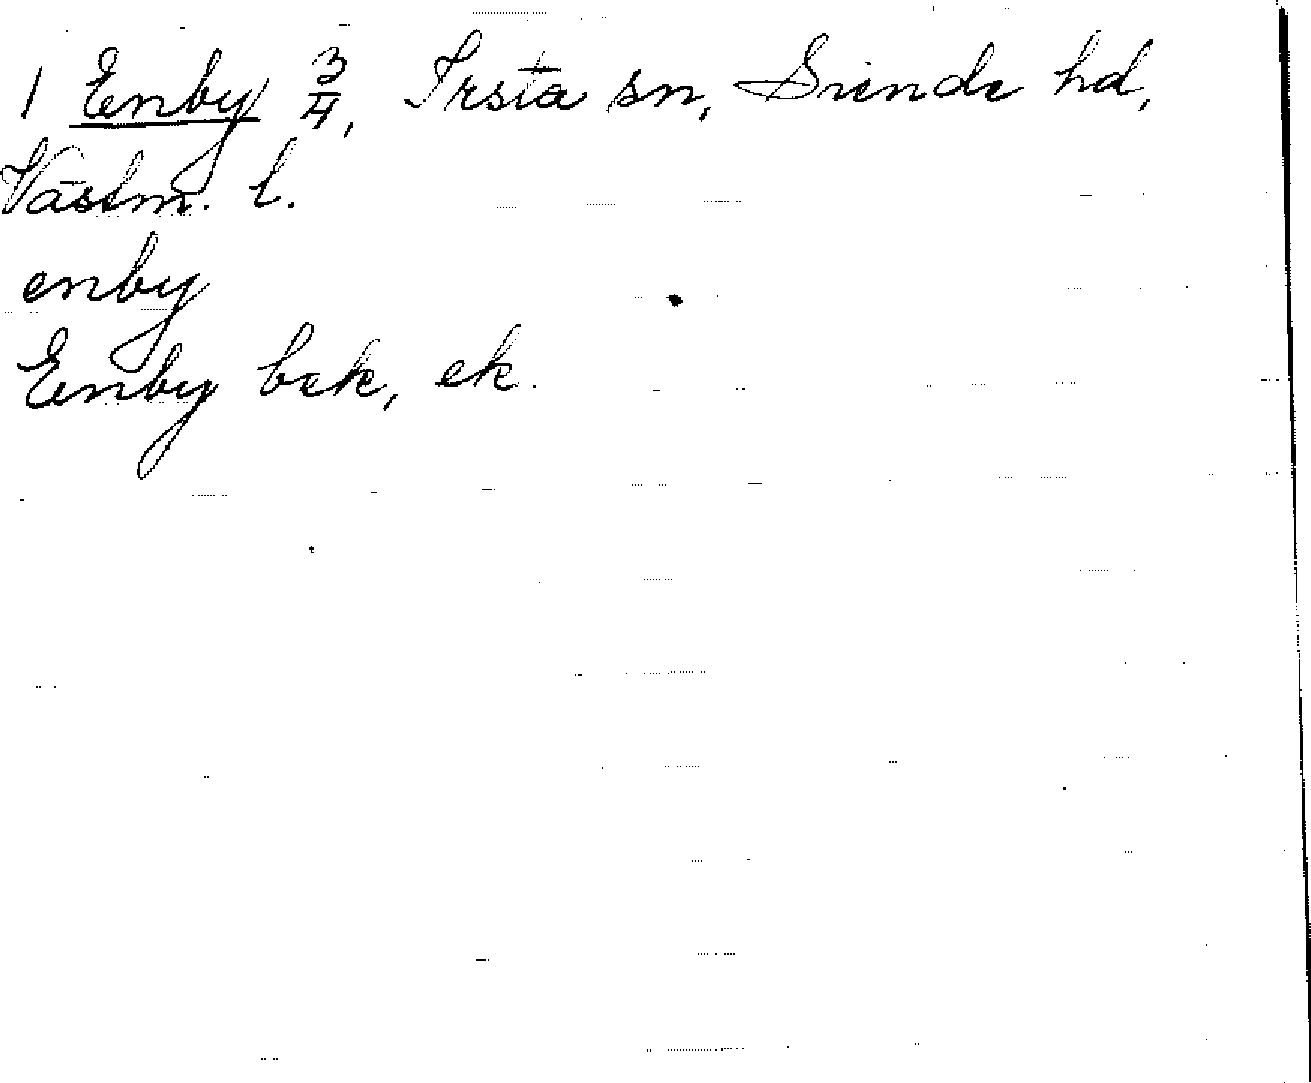 1 Enby 3/4, Irsta sn, Siende hd,
Västm. l.
enby
Enby bek, ek.